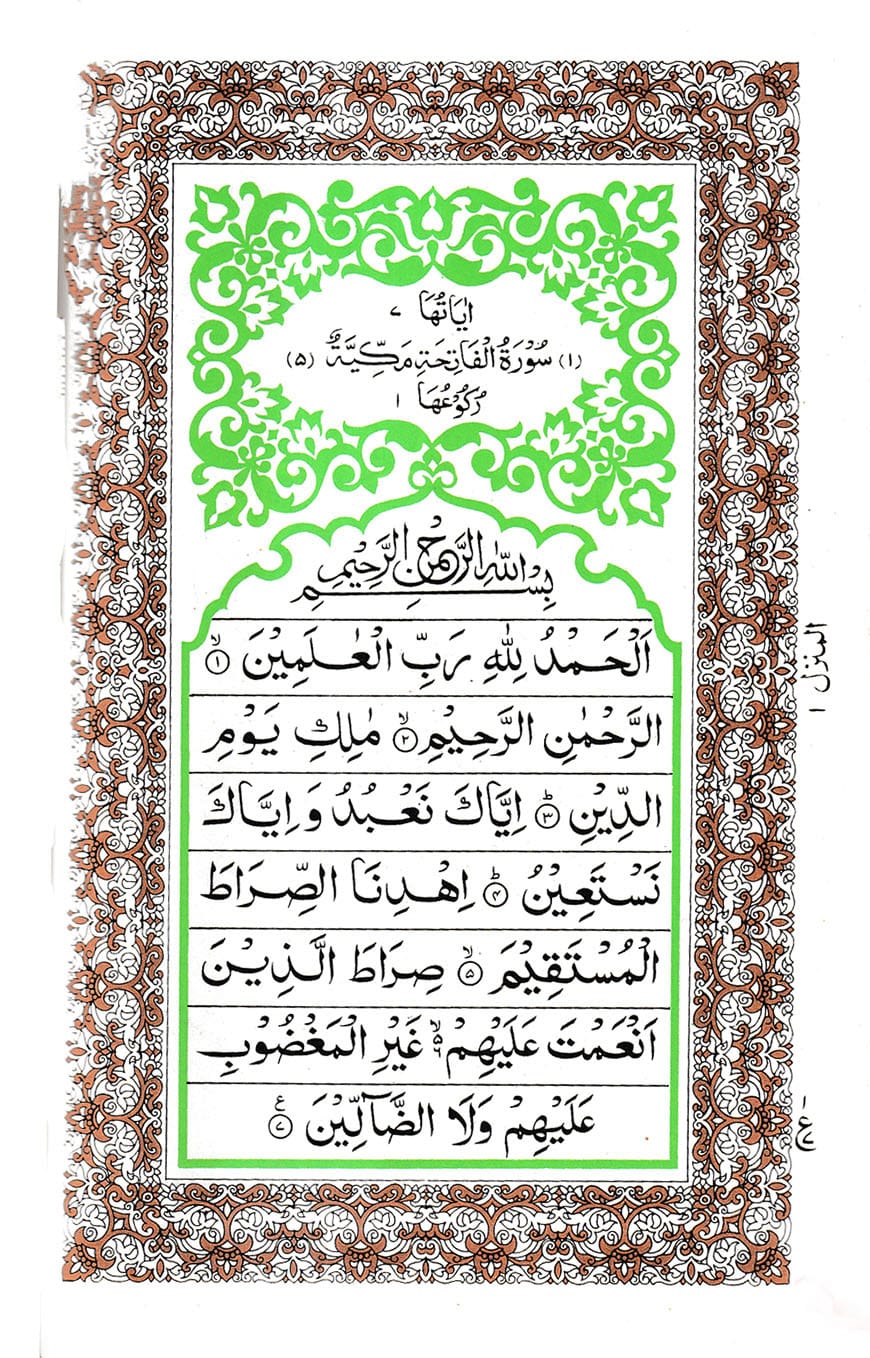 اٰيَاتُهَا ٧
(١) سُوْرَةُ الْفَاتِحَةِ مَكِّيَّةٌ (٥)
رُكُوْعُهَا ١
بِسْمِ اللّٰهِ الرَّحْمٰنِ الرَّحِيْمِ
اَلْحَمْدُ لِلّٰهِ رَبِّ الْعٰلَمِيْنَ ۙ﴿١﴾
الرَّحْمٰنِ الرَّحِيْمِ ۙ﴿٢﴾ مٰلِكِ يَوْمِ
الدِّيْنِ ؕ﴿٣﴾ اِيَّاكَ نَعْبُدُ وَ اِيَّاكَ
نَسْتَعِيْنُ ؕ﴿٤﴾ اِهْدِنَا الصِّرَاطَ
الْمُسْتَقِيْمَ ۙ﴿٥﴾ صِرَاطَ الَّذِيْنَ
اَنْعَمْتَ عَلَيْهِمْ ۙ۬٦ غَيْرِ الْمَغْضُوْبِ
عَلَيْهِمْ وَلَا الضَّآلِّيْنَ ﴿٧﴾ع
المنزل ١